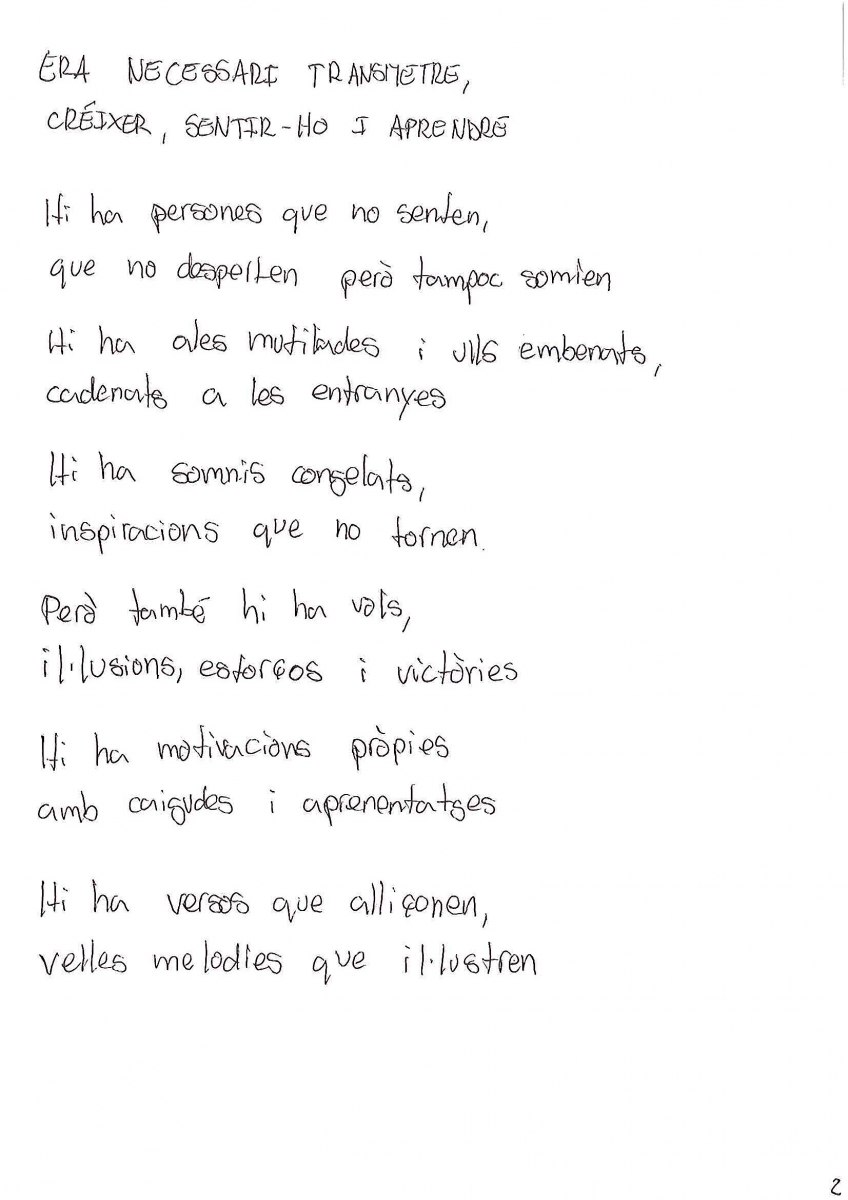 ERA NECESSARI TRANSMETRE,
CRÉIXER, SENTIR-HO I APRENDRE
Hi ha persones que no senten,
que no desperten però tampoc somien
Hi ha ales mutilades i ulls embenats,
cadenats a les entranyes
Hi ha somnis congelats,
inspiracions que no tornen.
Però també hi ha vols,
il·lusions, esforços i victòries
Hi ha motivacions pròpies
amb caigudes i aprenentatges
Hi ha versos que alliçonen,
velles melodies que il·lustren
2